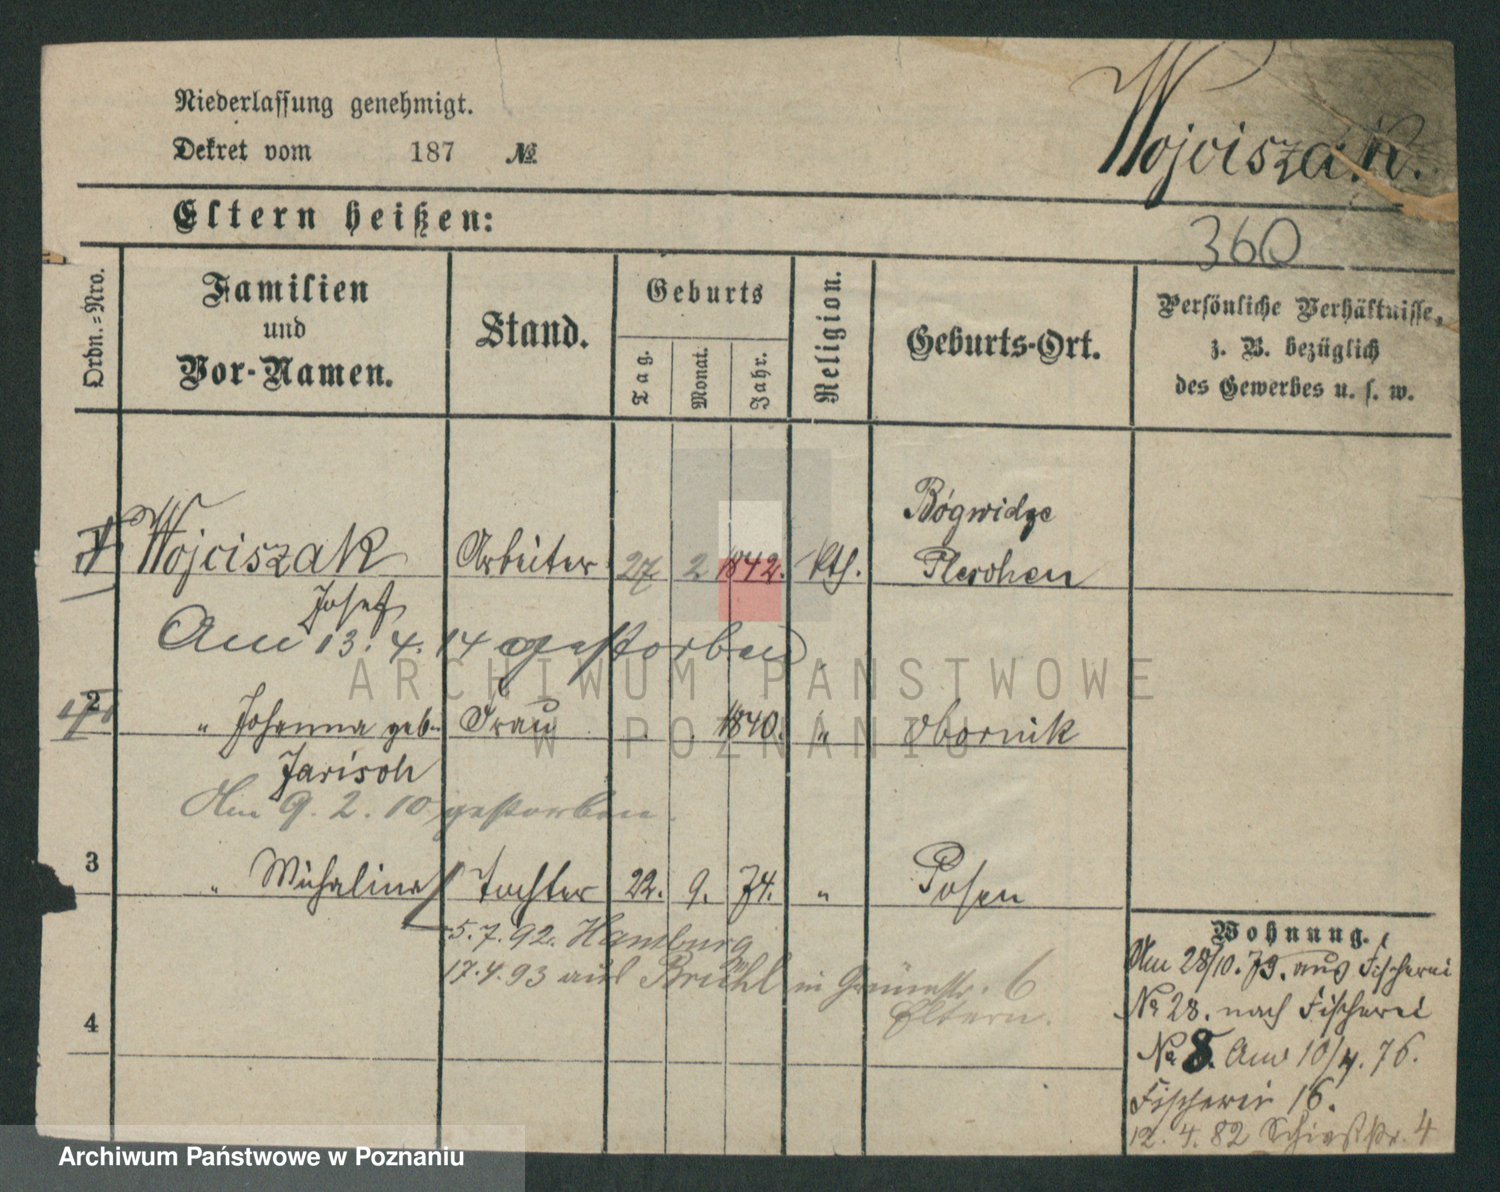 Niederlassung genehmigt.
Dekret vom 187 №
Wojciszak.
Eltern heißen:
360
Ordn.=Nro.
Familien
und
Vor-Namen.
Stand.
Geburts
Tag.
Monat.
Jahr.
Religion.
Geburts-Ort.
Persönliche Verhältnisse,
z. B. bezüglich
des Gewerbes u. s. w.
Wojciszak Arbeiter 27 2 1842. kth. Bógwidze
Pleschen
Josef
Am 13. 4. 14 gestorben
ARCHIWUM PAŃSTWOWE
W POZNANIU
2 " Johanna geb. Frau 1840. " Obornik
Jarisch
Am 9. 2. 10 gestorben.
3 " Michalina Tochter 22. 9. 74. " Posen
5.7.92. Hamburg
17.4.93 aus Brühl in Grünstr. 6
Eltern.
4
Wohnung.
Am 28/10. 73. aus Fischerei
No 28. nach Fischerei
No 8. Am 10/4. 76.
Fischerei 16.
12. 4. 82 Schießstr. 4
Archiwum Państwowe w Poznaniu